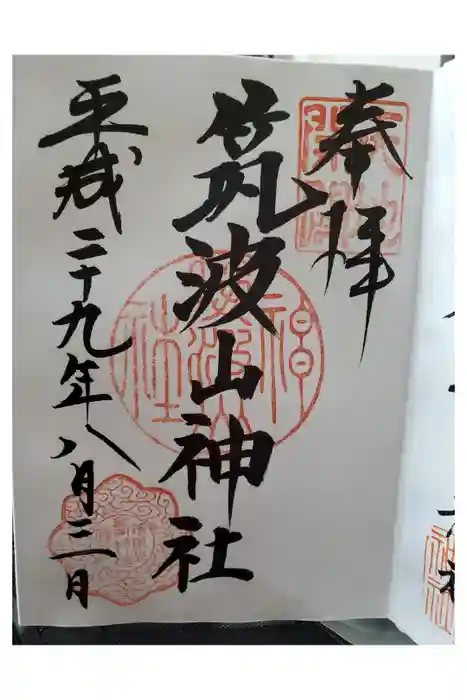 奉拝
筑波山神社
平成二十九年八月三日